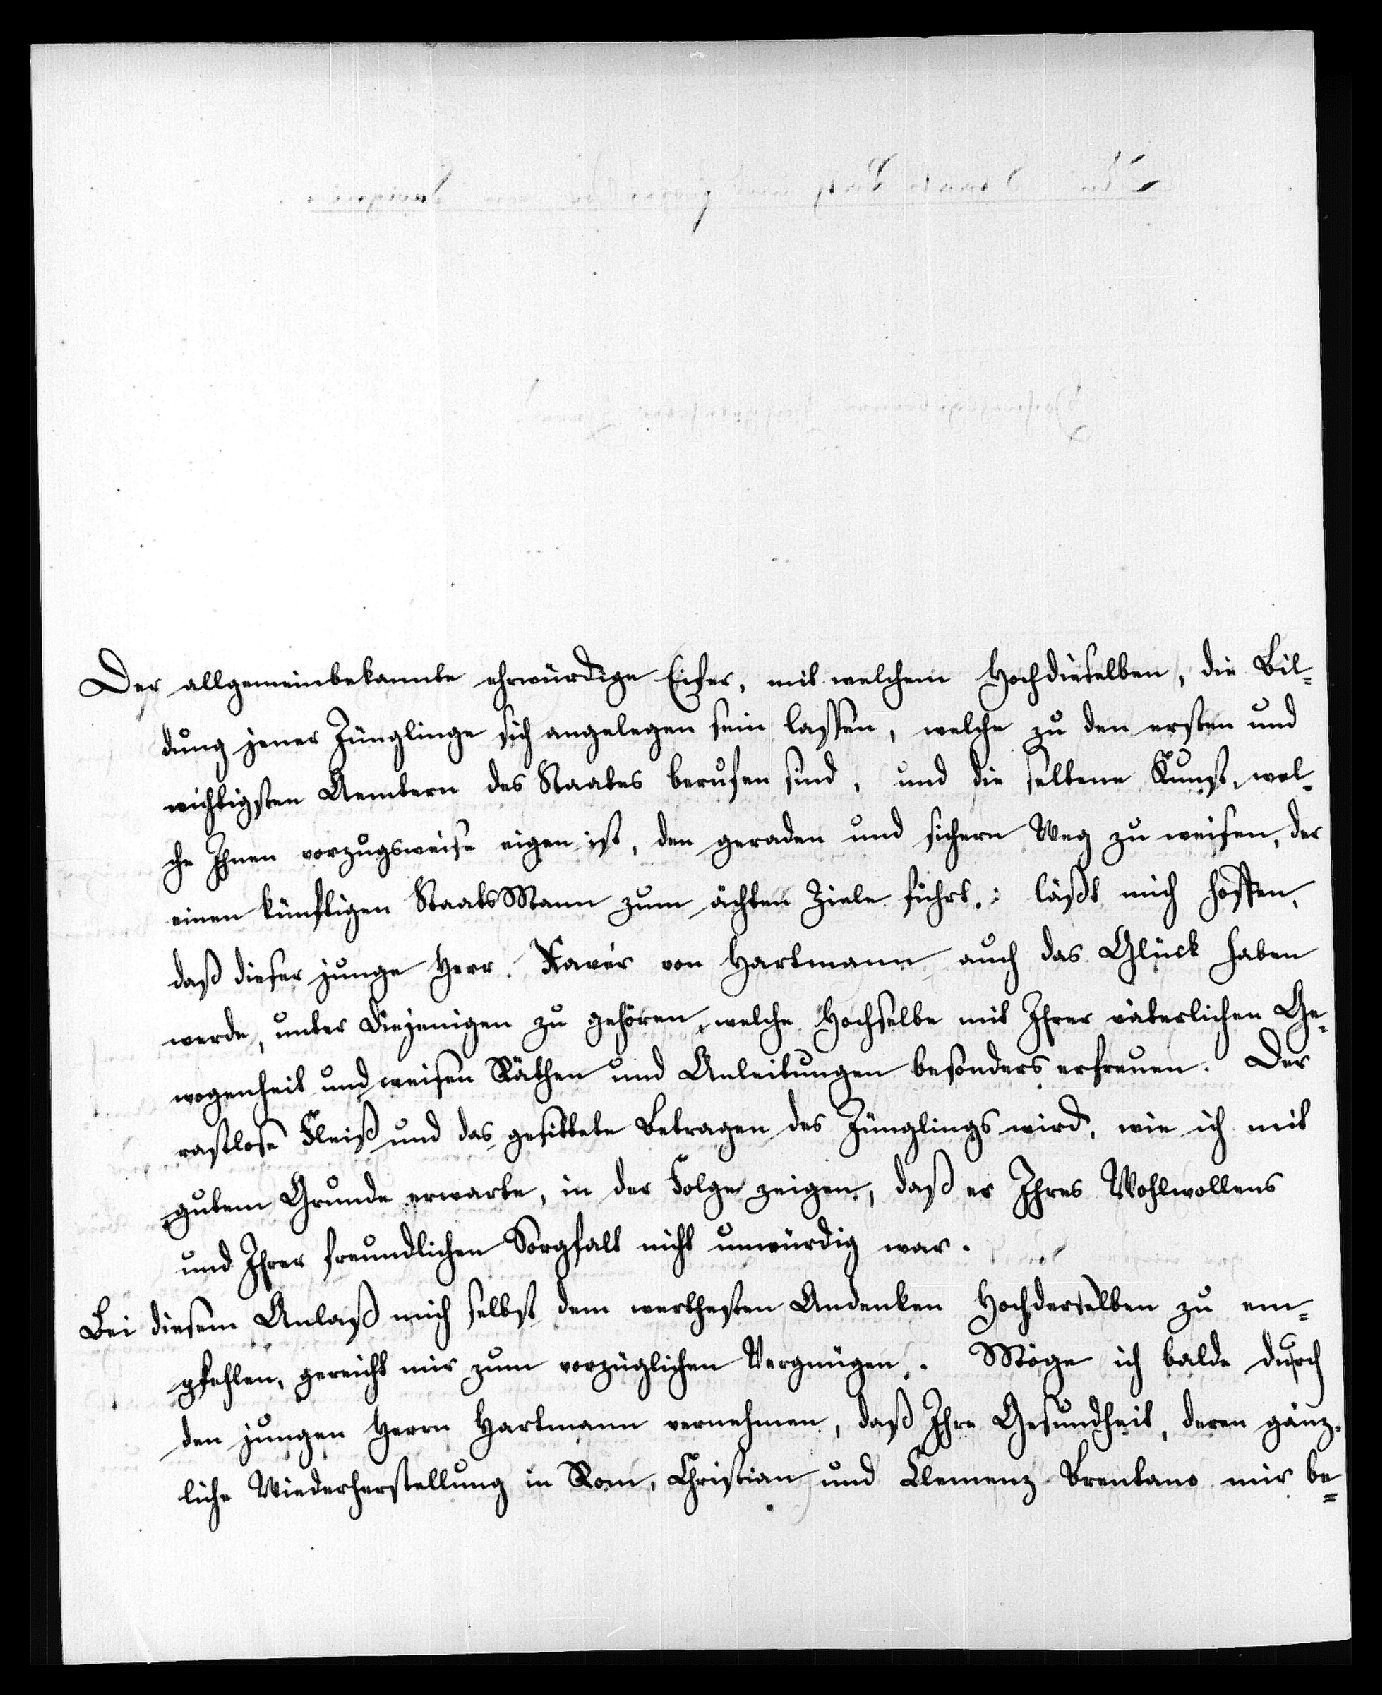 Der allgemeinbekannte ehrwürdige Eifer, mit welchem Hochdieselben, die Bil-
dung jener Jünglinge sich angelegen sein lassen, welche zu den ersten und
wichtigsten Aemtern des Staates berufen sind, und die seltene Kunst, wel-
che Ihnen vorzugsweise eigen ist, den geraden und sichern Weg zu weisen, der
einen künftigen StaatsMann zum ächten Ziele führt.: läßt mich hoffen,
daß dieser junge Herr Xavér von Hartmann auch das Glück haben
werde, unter Diejenigen zu gehören, welche Hochselbe mit Ihrer väterlichen Ge-
wogenheit und weisen Räthen und Anleitungen besonders erfreuen. Der
rastlose Fleiß und das gesittete Betragen des Jünglings wird, wie ich mit
gutem Grunde erwarte, in der Folge zeigen, daß er Ihres Wohlwollens
und Ihrer freundlichen Sorgfalt nicht unwürdig war.
Bei diesem Anlaß mich selbst dem werthesten Andenken Hochderselben zu em-
pfehlen, gereicht mir zum vorzüglichen Vergnügen. Möge ich balde durch
den jungen Herrn Hartmann vernehmen, daß Ihre Gesundheit, deren gänz-
liche Wiederherstellung in Rom, Christian und Clemenz Brentano mir be-